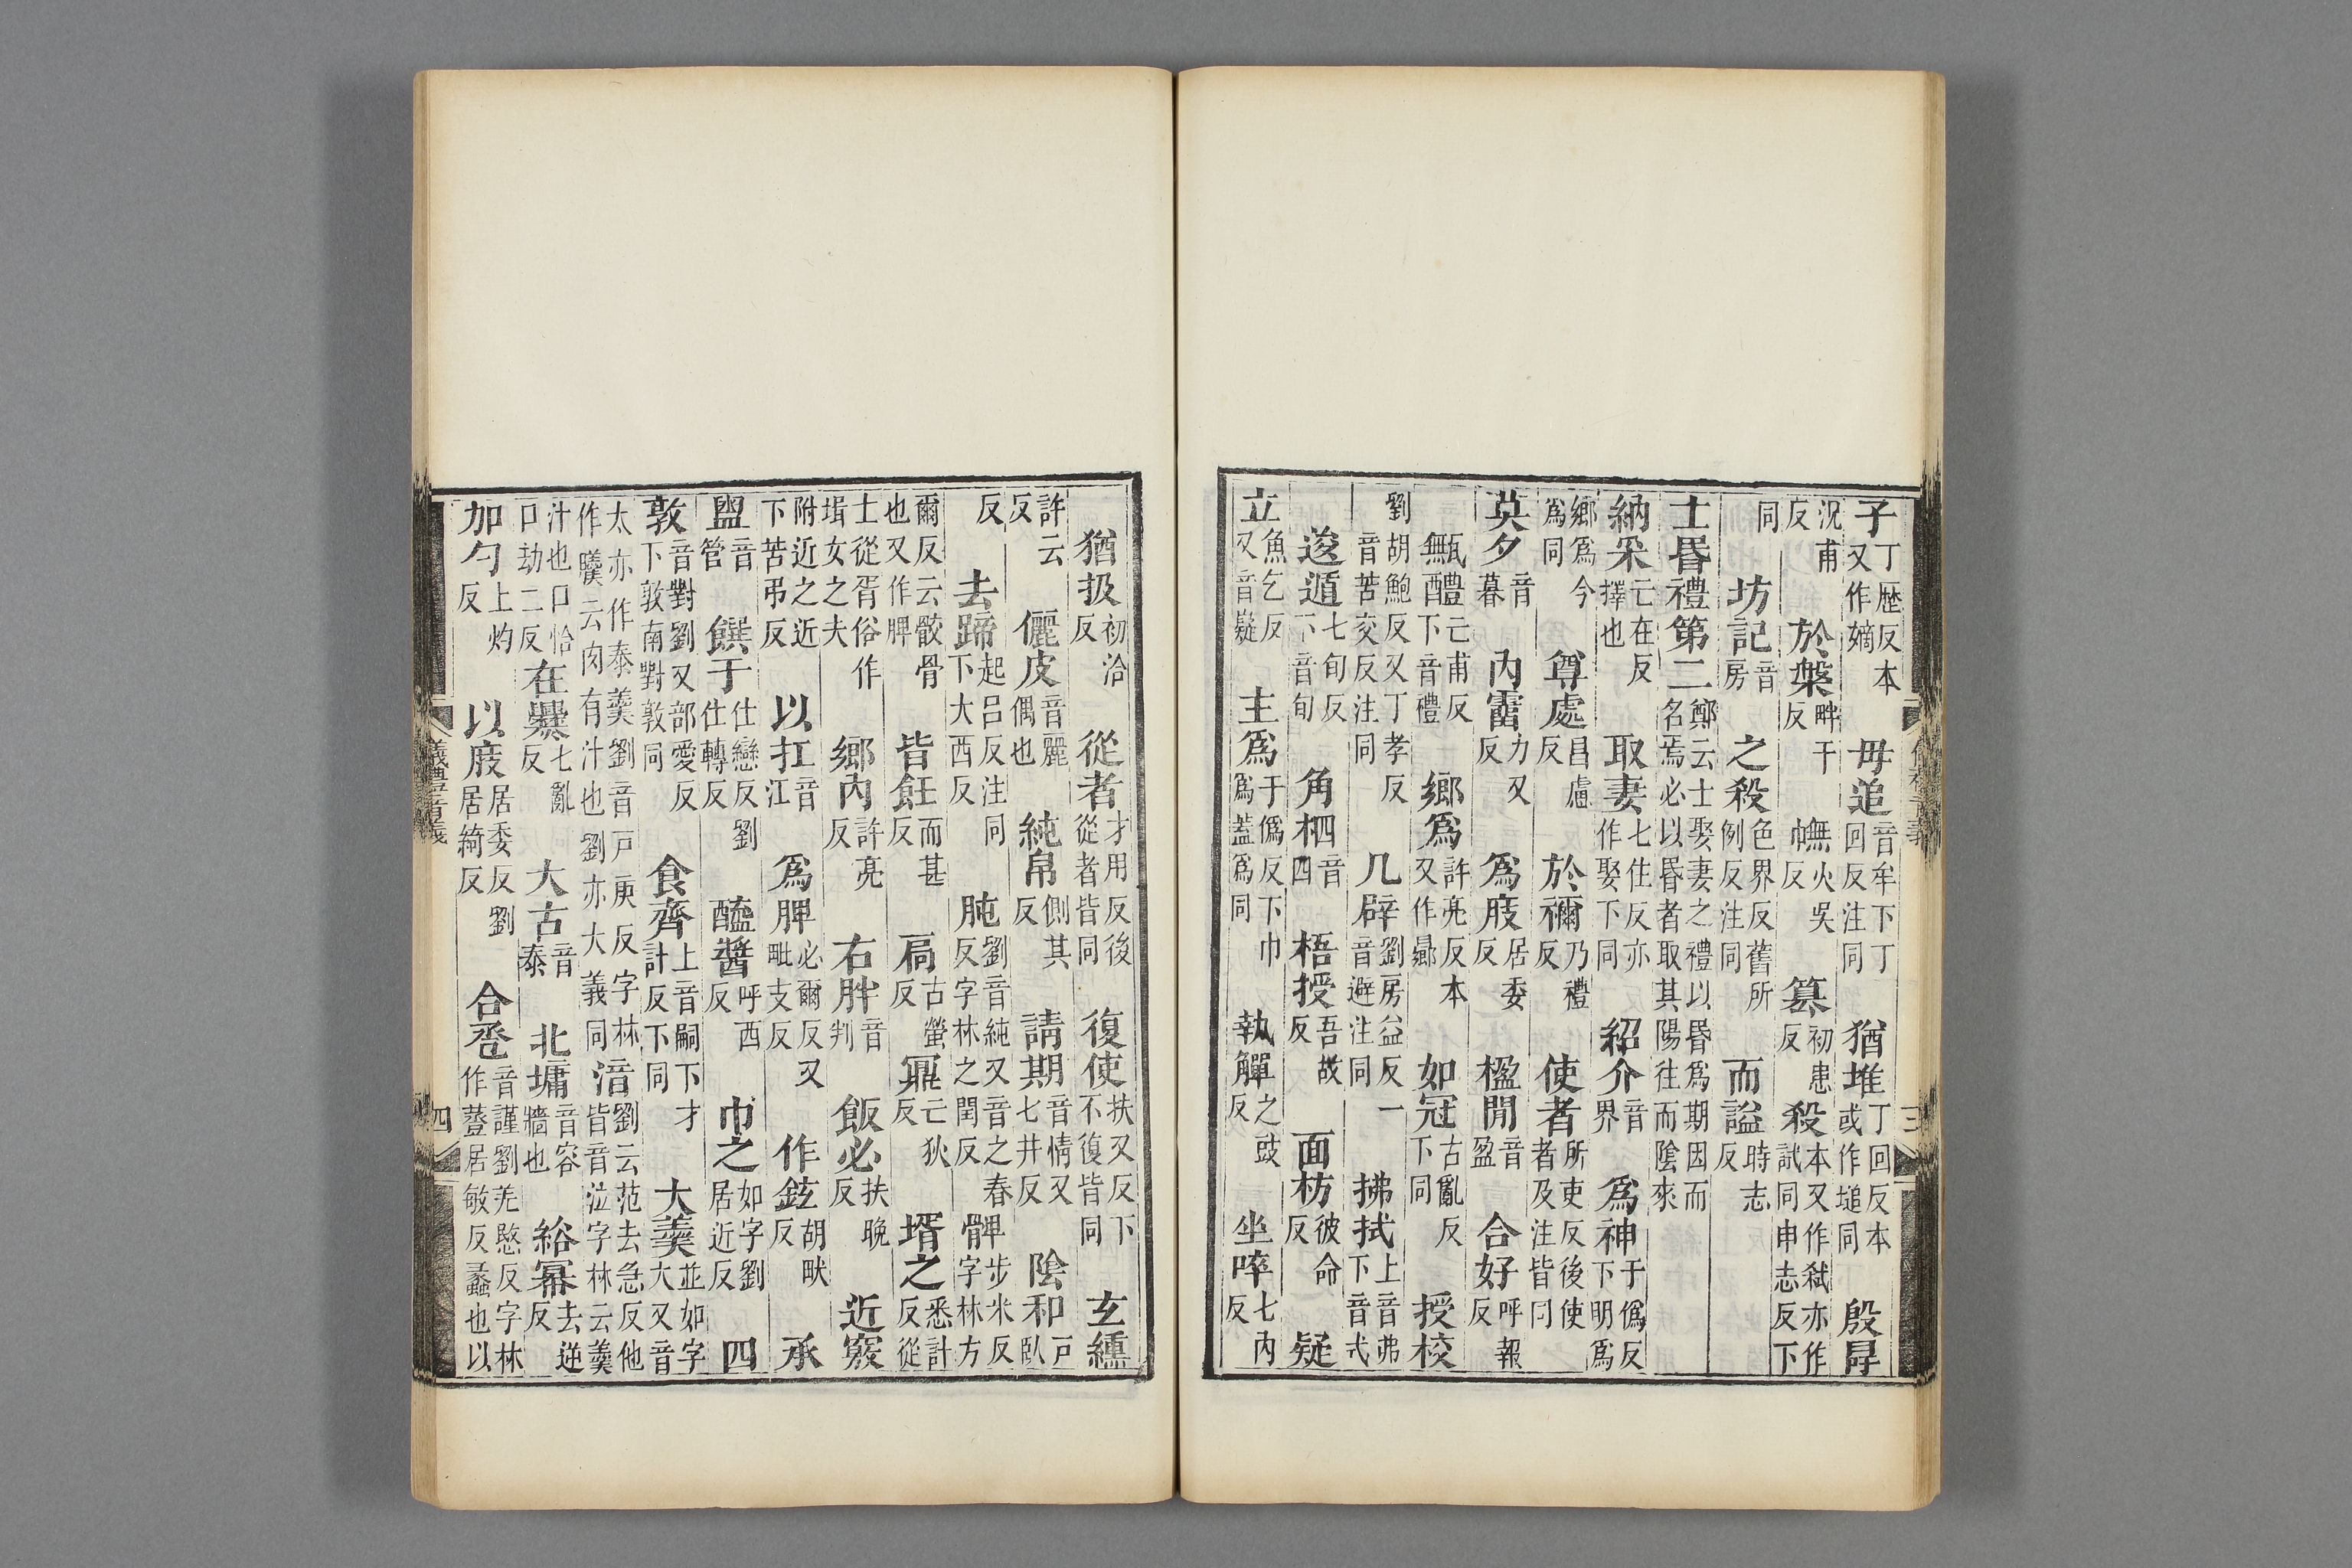 子丁歷反本又作嫡 毋追音牟下丁回反注同 猶堆丁回反本或作塠同 殷冔
況甫反 於槃畔干反 幠火吳反 簒初患反 殺本又作弒亦作試同申志反下
同 坊記音房 之殺色界反舊所例反注同 而謚時志反
士昬禮第二鄭云士娶妻之禮以昬爲期因而名焉必以昬者取其陽往而陰來
納采亡在反擇也 取妻七住反亦作娶下同 紹介音界 爲神于僞反下明爲
鄉爲今爲同 尊處昌慮反 於禰乃禮反 使者所吏反後使者及注皆同
莫夕音暮 內霤力又反 爲庪居委反 楹閒音盈 合好呼報反
甒醴亡甫反下音禮 鄉爲許亮反本又作曏 如冠古亂反下同 授校
劉胡鮑反又丁孝反音苦交反注同 几辟劉房益反一音避注同 拂拭上音弗下音式
逡遁七旬反下音旬 角柶音四 梧授吾故反 面枋彼命反 疑
立魚乞反又音嶷 主爲于僞反下巾爲蓋爲同 執觶之豉反 坐啐七內反
猶扱初洽反 從者才用反後從者皆同 復使扶又反下不復皆同 玄纁
許云反 儷皮音麗偶也 純帛側其反 請期音情又七井反 陰和戶臥
反 去蹄起呂反注同下大西反 肫劉音純又音之春反字林之閏反 髀步米反字林方
爾反云骸骨也又作脾 皆飪而甚反 扃古螢反 鼏亡狄反 壻之悉計反從
士從胥俗作㙛女之夫 鄉內許亮反 右胖音判 飯必扶晚反 近竅
附近之近下苦弔反 以扛音江 爲脾必爾反又毗支反 作鉉胡畎反 承
盥音管 饌于仕戀反劉仕轉反 醯醬呼西反 巾之如字劉居近反 四
敦音對劉又部愛反下敦南對敦同 食齊上音嗣下才計反下同 大羹並如字大又音
太亦作泰羹劉音戶庚反字林作𩱧云肉有汁也劉亦大羹同 湆劉云范去急反他皆音泣字林云羹
汁也口恰口劫二反 在爨七亂反 大古音泰 北墉音容牆也 綌冪去逆反
加勺上灼反 以庪居委反劉居綺反 合巹音謹劉羌愍反字林作蓳居敏反蠡也以
儀禮音義
三
儀禮音義
四